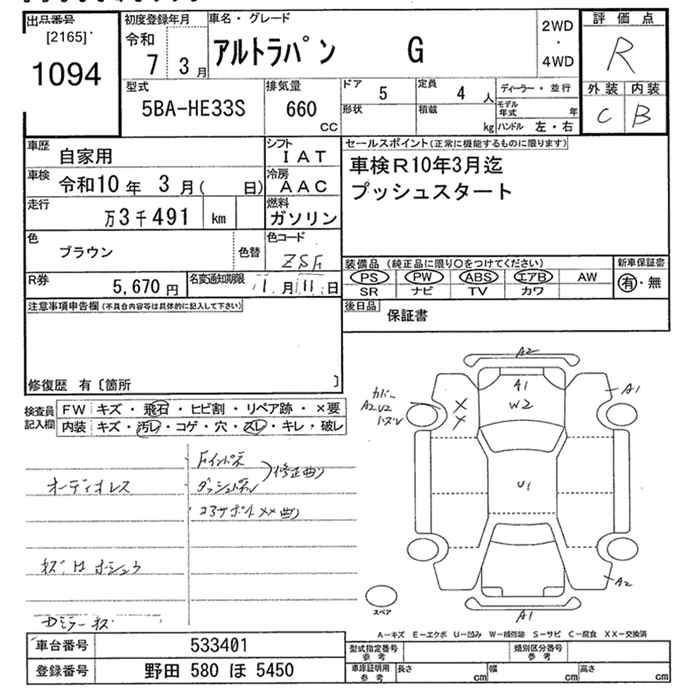 出品番号
[2165]
1094
初度登録年月
令和
7 3月
車名・グレード
アルトラパン G
2WD
・
4WD
評価点
R
外装 内装
C B
型式
5BA-HE33S
排気量
660
CC
ドア 5
形状
定員 4 人
積載 kg
ディーラー・並行
モデル年式 年
ハンドル 左・右
車歴 自家用
シフト IAT
車検 令和10年 3月( 日)
冷房 AAC
走行 万3千491 km
燃料 ガソリン
色 ブラウン 色替
色コード ZSF
R券 5,670円
名変通知期限 11月11日
セールスポイント(正常に機能するものに限ります)
車検R10年3月迄
プッシュスタート
装備品(純正品に限り○をつけてください)
PS PW ABS エアB AW
SR ナビ TV カワ
新車保証書
有・無
後日品 保証書
注意事項申告欄(不具合内容等は具体的に記入して下さい)
修復歴 有〔箇所 〕
検査員記入欄
FW キズ・飛石・ヒビ割・リペア跡・×要
内装 キズ・汚レ・コゲ・穴・スレ・キレ・破レ
Fインパネ
ダッシュパネル
修正曲り
コアサポートXX曲り
オーディオレス
キズ・凹 ホシュウ
カバー
A2U2
A2
A1
W2
A1
U1
A2
A1
スペア
A-キズ E-エクボ U-凹み W-補修跡 S-サビ C-腐食 XX-交換済
車台番号 533401
登録番号 野田 580 ほ 5450
型式指定番号
参考
類別区分番号
参考
車庫証明用
参考
長さ cm 幅 cm 高さ cm